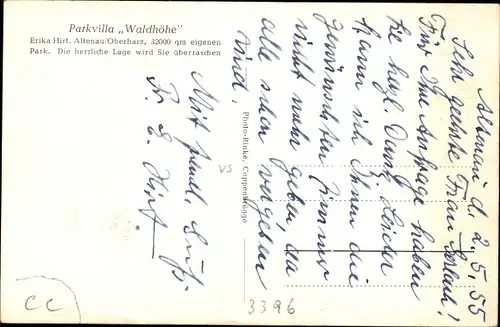 Parkvilla „Waldhöhe"
Erika Hirt, Altenau/Oberharz, 32000 qm eigenen
Park. Die herrliche Lage wird Sie überraschen
Altenau d. 2.5.55
Sehr geehrte Frau !
Für Ihre Anfrage haben
Sie herzl. Dank. Leider
kann ich Ihnen die
gewünschten Zimmer
nicht mehr geben, da
alle schon vergeben
sind.
Mit freundl. Gruß
Fr. E. Hirt.
Photo-Rinke, Coppenbrügge
VS
3396
CC